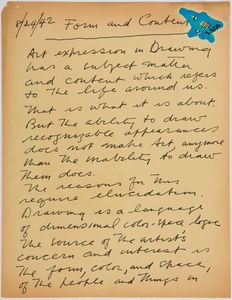 8/24/42 Form and Content
Art expression in Drawing
has a subject matter
and content which refers
to the life around us.
That is what it is about.
But the ability to draw
recognizable appearances
does not make Art, anymore
than the inability to draw
them does.
The reasons for this
require elucidation.
Drawing is a language
of dimensional color-space logic
The source of the artist's
concern and interest is
the form, color, and space,
of the people and things in